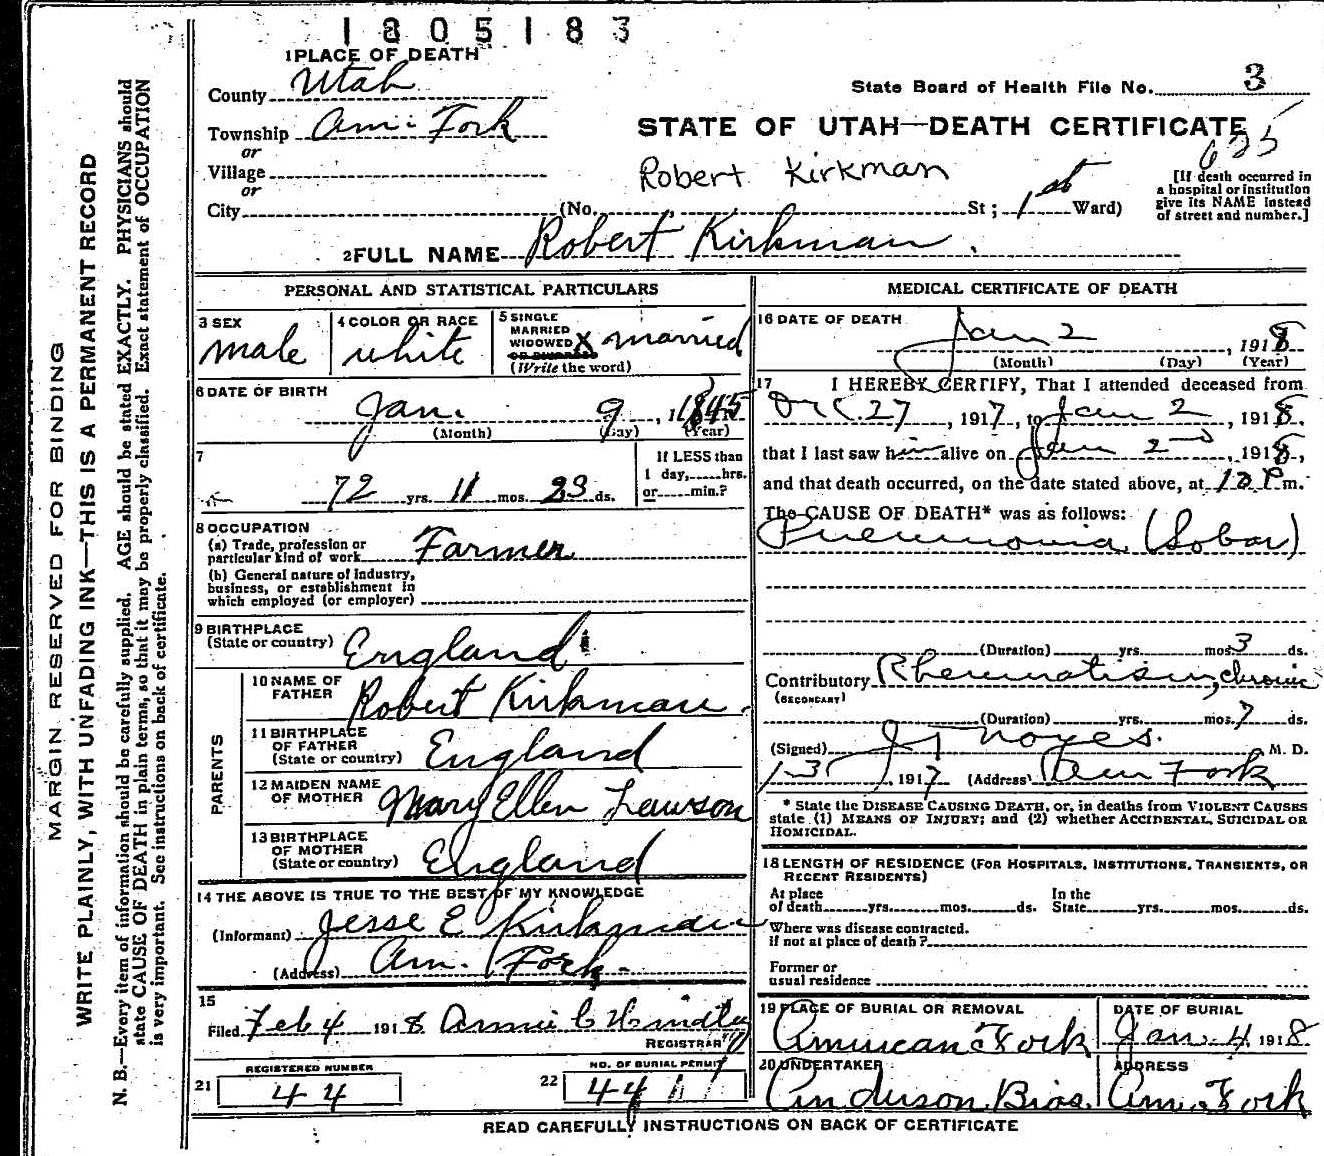 1805183
1 PLACE OF DEATH
County Utah
Township Am. Fork
or
Village
or
City (No. St; 1st Ward)
State Board of Health File No. 3
STATE OF UTAH—DEATH CERTIFICATE
625
Robert Kirkman
[If death occurred in
a hospital or institution
give its NAME instead
of street and number.]
2 FULL NAME Robert Kirkman.
MARGIN RESERVED FOR BINDING
WRITE PLAINLY, WITH UNFADING INK—THIS IS A PERMANENT RECORD
N. B.—Every item of information should be carefully supplied. AGE should be stated EXACTLY. PHYSICIANS should
state CAUSE OF DEATH in plain terms, so that it may be properly classified. Exact statement of OCCUPATION
is very important. See instructions on back of certificate.
PERSONAL AND STATISTICAL PARTICULARS
3 SEX
male
4 COLOR OR RACE
white
5 SINGLE
MARRIED
WIDOWED X married
OR DIVORCED
(Write the word)
6 DATE OF BIRTH
Jan. 9, 1845
(Month) (Day) (Year)
7
72 yrs. 11 mos. 23 ds.
If LESS than
1 day, hrs.
or min.?
8 OCCUPATION
(a) Trade, profession or
particular kind of work Farmer
(b) General nature of industry,
business, or establishment in
which employed (or employer)
9 BIRTHPLACE
(State or country) England
PARENTS
10 NAME OF
FATHER Robert Kirkman.
11 BIRTHPLACE
OF FATHER
(State or country) England
12 MAIDEN NAME
OF MOTHER Mary Ellen Lawson
13 BIRTHPLACE
OF MOTHER
(State or country) England
14 THE ABOVE IS TRUE TO THE BEST OF MY KNOWLEDGE
(Informant) Jesse E Kirkman
(Address) Am. Fork.
15
Filed Feb 4 1918 Annie C
REGISTRAR
REGISTERED NUMBER
21 44
NO. OF BURIAL PERMIT
22 44
MEDICAL CERTIFICATE OF DEATH
16 DATE OF DEATH
Jan 2, 1918
(Month) (Day) (Year)
17 I HEREBY CERTIFY, That I attended deceased from
Dec. 27, 1917, to Jan 2, 1918
that I last saw him alive on Jan 2nd, 1918,
and that death occurred, on the date stated above, at 12 P m.
The CAUSE OF DEATH* was as follows:
Pneumonia (Lobar)
(Duration) yrs. mos. 3 ds.
Contributory Rheumatism, chronic
(SECONDARY)
(Duration) yrs. mos. 7 ds.
(Signed) J F Noyes. M. D.
1-3 1917 (Address) Am Fork
* State the DISEASE CAUSING DEATH, or, in deaths from VIOLENT CAUSES
state (1) MEANS OF INJURY; and (2) whether ACCIDENTAL, SUICIDAL OR
HOMICIDAL.
18 LENGTH OF RESIDENCE (FOR HOSPITALS, INSTITUTIONS, TRANSIENTS, OR
RECENT RESIDENTS)
At place In the
of death yrs. mos. ds. State yrs. mos. ds.
Where was disease contracted.
if not at place of death?
Former or
usual residence
19 PLACE OF BURIAL OR REMOVAL
American Fork
DATE OF BURIAL
Jan. 4 1918
20 UNDERTAKER
Anderson Bros.
ADDRESS
Am. Fork
READ CAREFULLY INSTRUCTIONS ON BACK OF CERTIFICATE